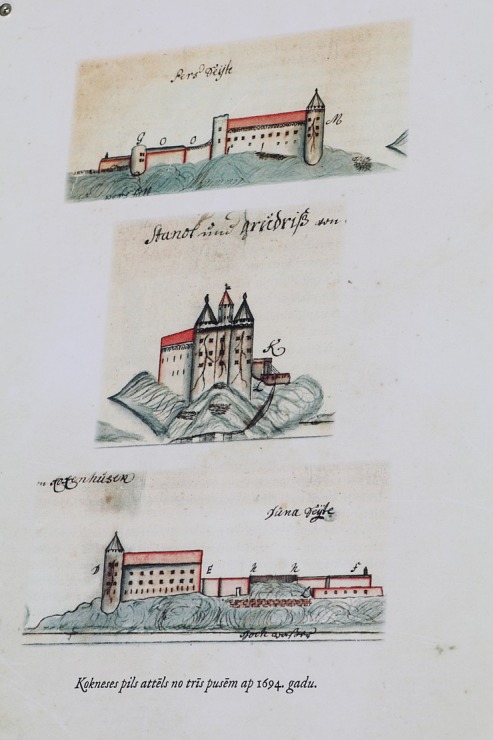 Pers Seÿte
G O O M
Stand und grŭdriß von
K
L
Düna Seÿte
D E h h F
Hoch waßer
Kokneses pils attēls no trīs pusēm ap 1694. gadu.